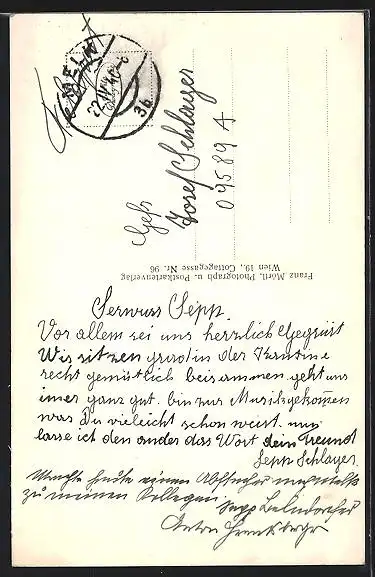 Feldpost
WELS
22.IV.40-8
3b
Gefr
Josef Schlager
09589 A
Franz Mörtl, Photograph u. Postkartenverlag
Wien 19., Cottagegasse Nr. 96
Serwuss Sepp.
Vor allem sei uns herzlich Gegrüst
Wir sitzen grad in der Kantine
recht gemüstlich beisammen. geht uns
imer ganz gut. bin zur Musik gekomen
was Du vieleicht schon weist. nun
lasse ich den ander das Wort dein Freund
Sepp Schlager
Machte heute einen Abstecher
zu meinen Kollegen. Sepp
Anton